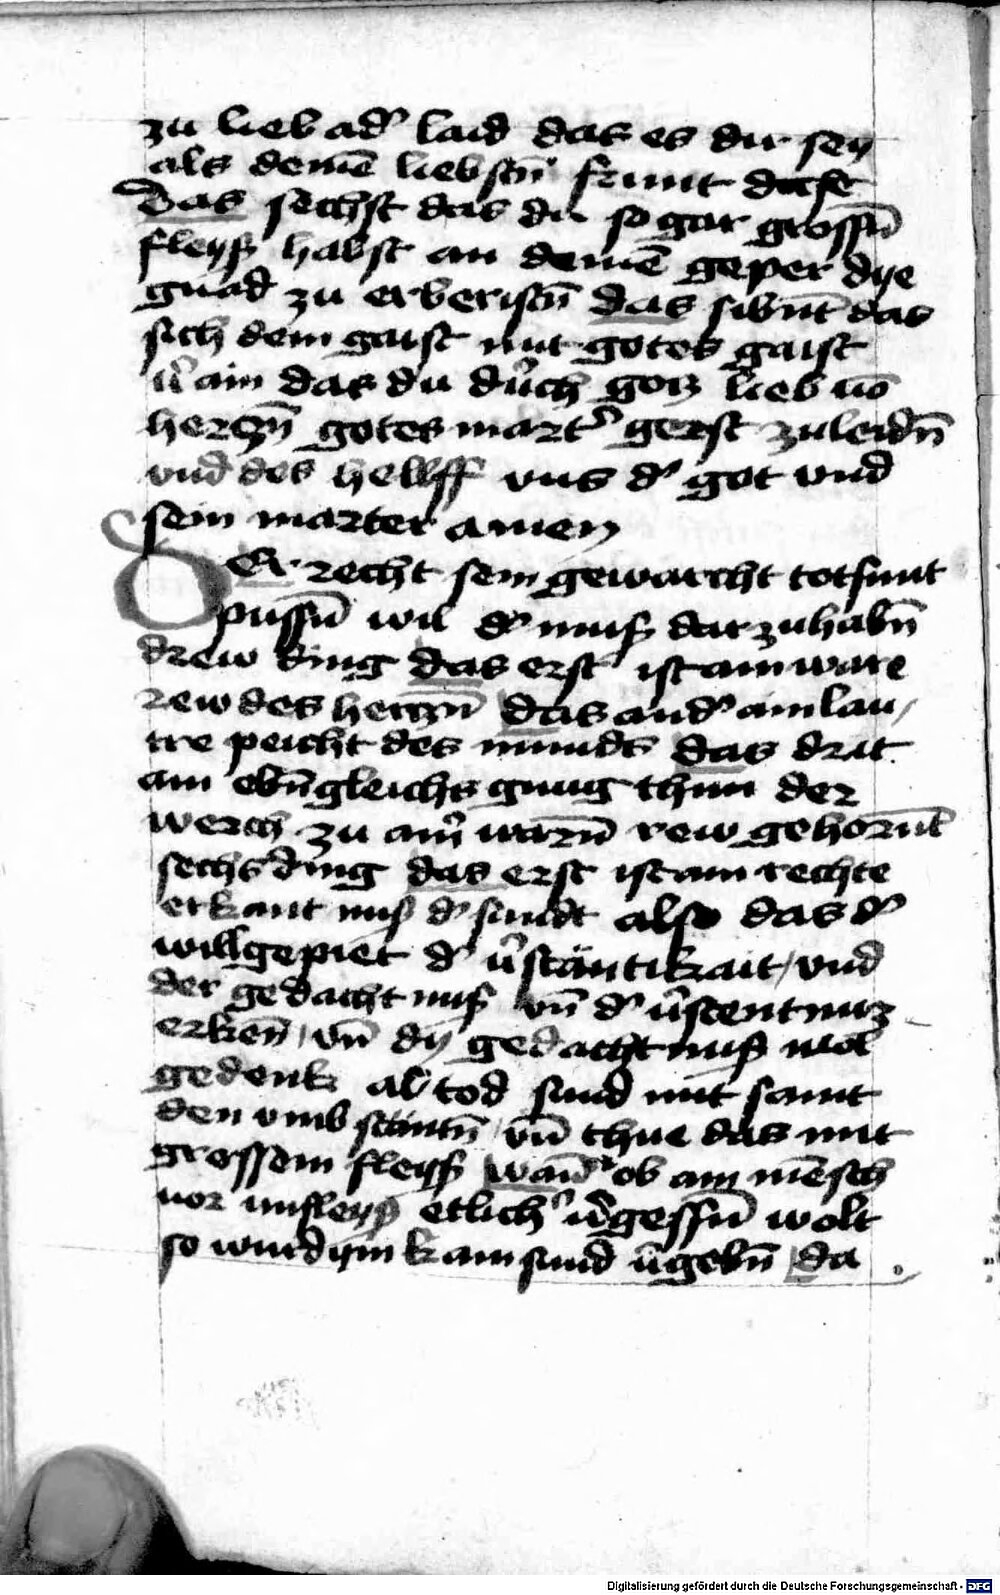 zu lieb ad' laid das es dir sey
als deinē liebstn̄ frunt
Das sechst das du so gar grossn̄
fleyſß habst an deinē geper dye
gnad zu erberistn̄ das sibn̄t das
sich dein gaist mit gotes gaist
v̄ain das du durch gotz lieb vō
herczn̄ gotes mart' gerst zuleidn̄
vnd des hellff vns d' got vnd
sein marter amen
Der recht sein gewarcht totsunt
pussn̄ wil d' muß dar zu habn̄
drew ding das erst ist ain ware
rew des herczn̄ das and' ain lau
tre peicht des munds das drit
ain ebn̄gleichs gnug thun der
werch zu ain' warn̄ rew gehornt
sechs ding das erst ist ain rechte
erkant nuß d' sundt also das d'
will gepiet d' v̄stäntikait / vnd
der gedacht nuß vn̄ d' v̄stentnuz
erken̄ / vn̄ dy gedacht nuß wol
gedenk all tod sund mit samt
den vmb stäntn̄ vn̄ thue das mit
grossem fleyß wan̄ ob ain mēsch
vor unfleyß etlich' v̄gessn̄ wolt
so wurd ym kain sund v̄gebn̄ da
Digitalisierung gefördert durch die Deutsche Forschungsgemeinschaft - DFG